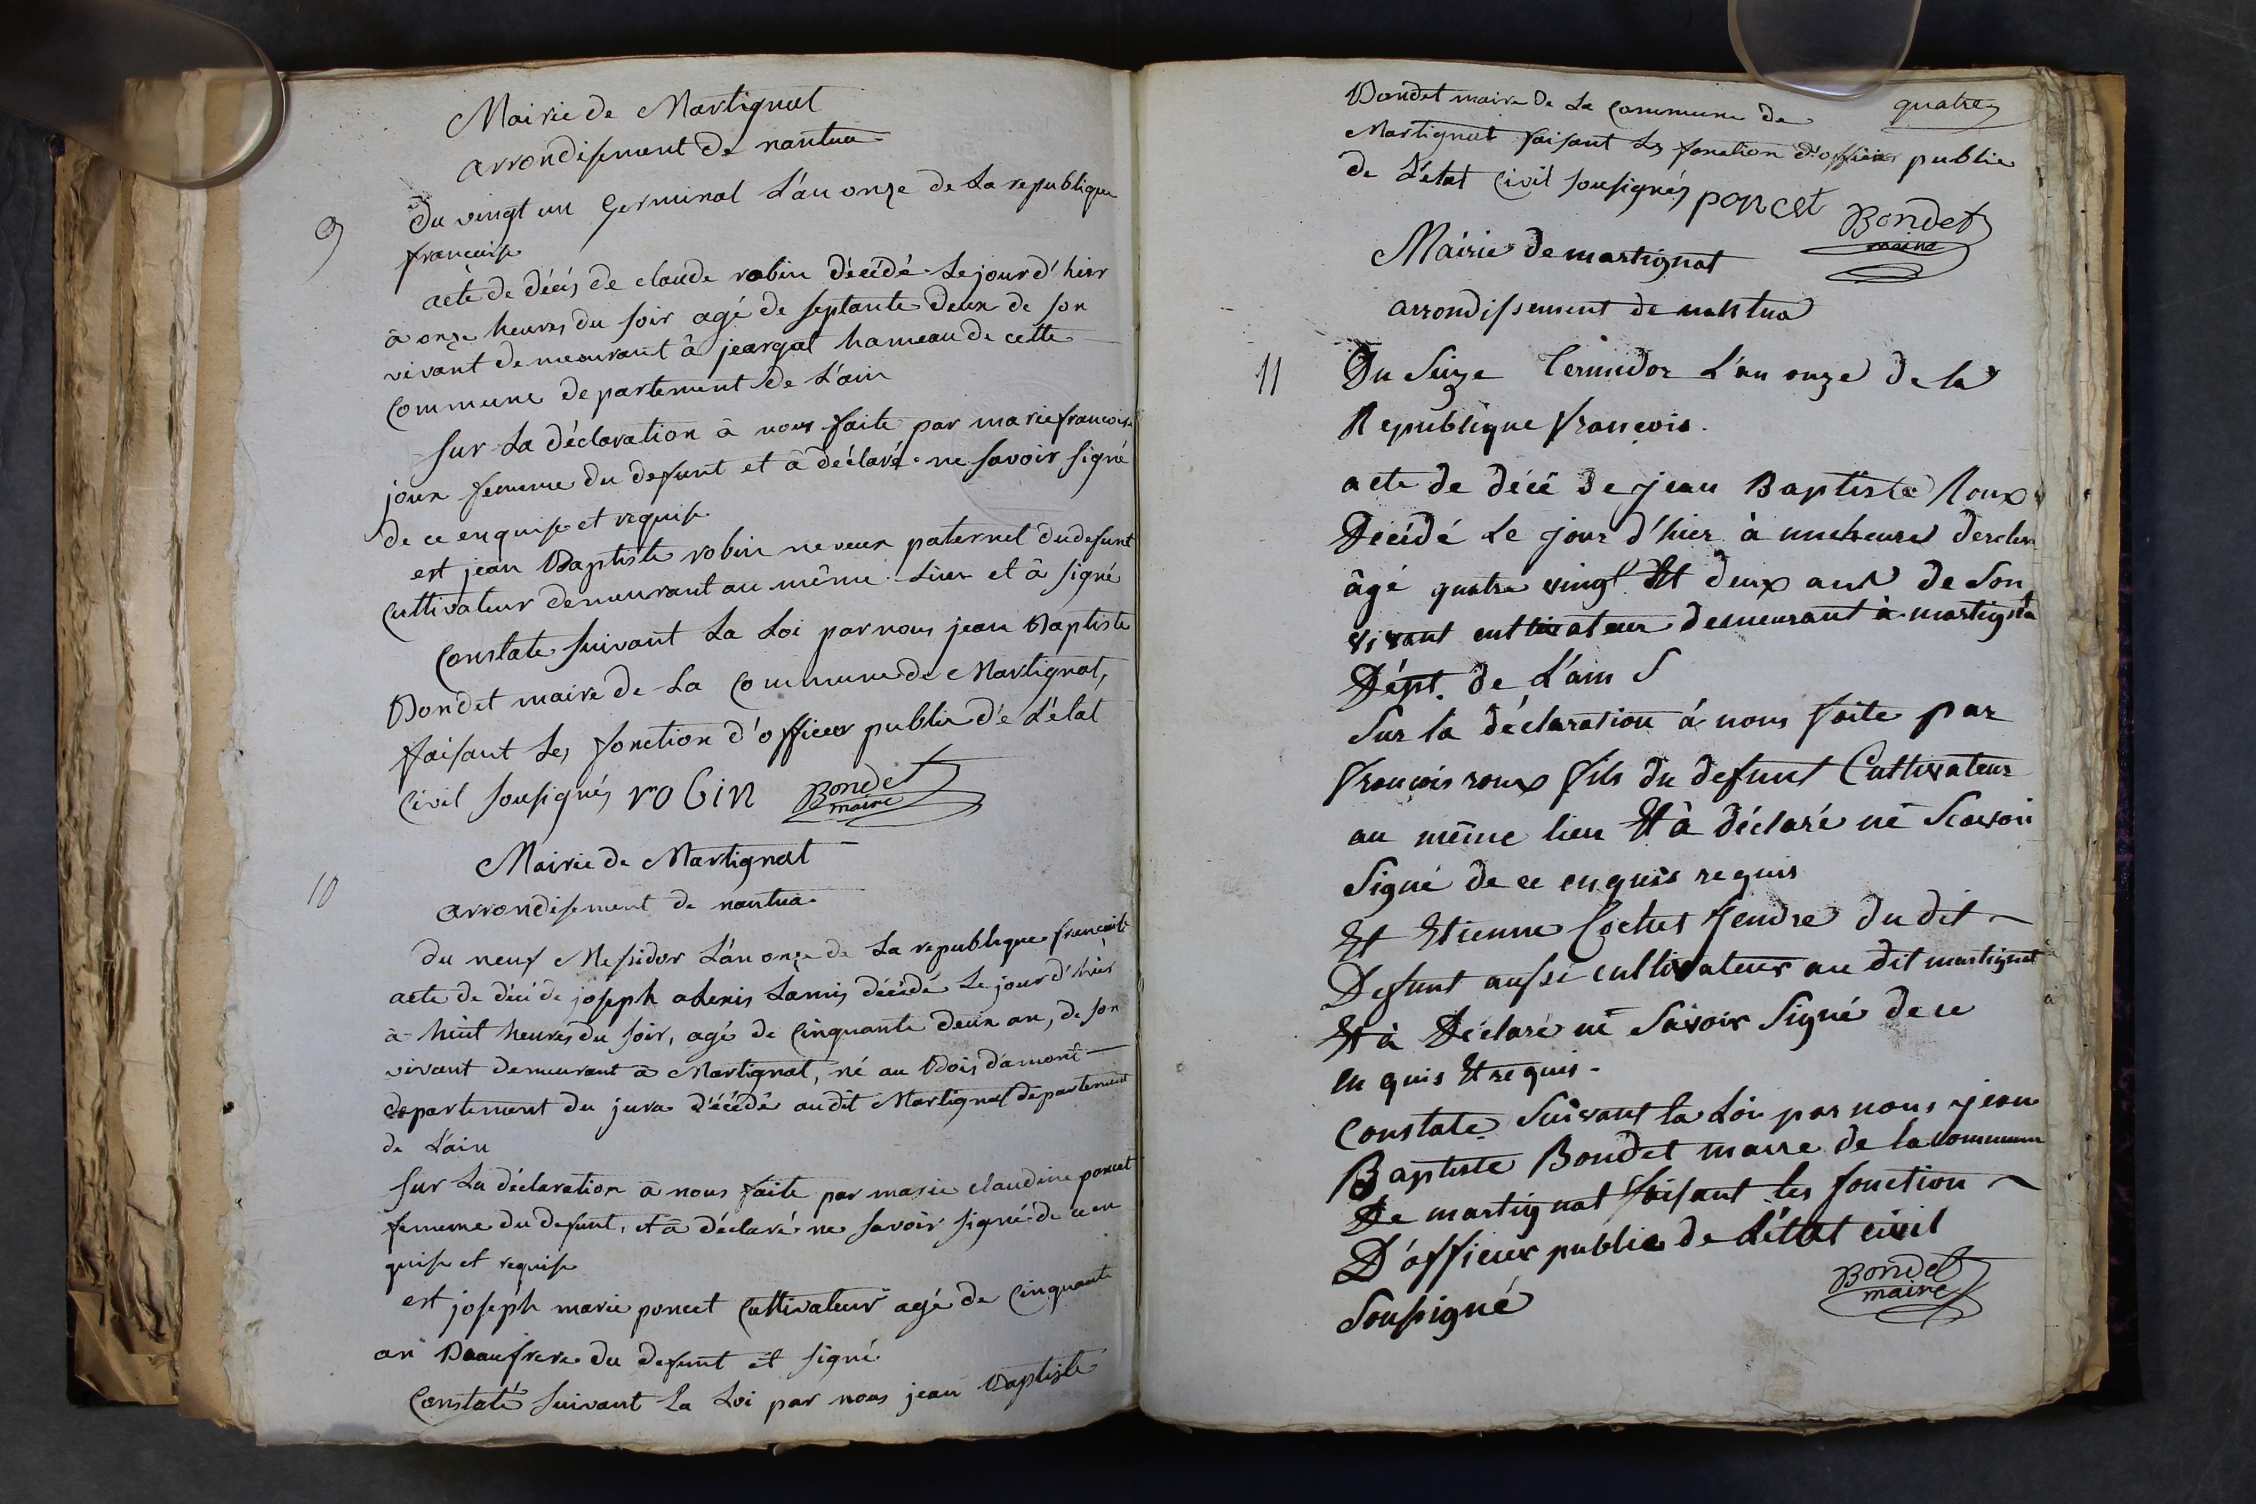 Mairie de Martignat
arrondisement de nantua
9
Du vingt un Germinal L'an onze de La republique
francaise
acte de décis de claude robin décédé Le jour d'hier
à onze heures du soir agé de septante deux de son
vivant demeurant à jeargat hameau de cette
Commune departement de L'ain
sur La déclaration à nous faite par marie francoise
joux femme du defunt et à déclaré ne savoir signé
de ce enquise et requise
est jean Baptiste robin neveux paternel du defunt
Cultivateur demeurant au même Lieu et à signé
Constate suivant La Loi par nous jean Baptiste
Bondet maire de La Commune de Martignat,
faisant Les fonction d'officer public de L'état
Civil sousignés robin Bondet
maire
Mairie de Martignat
10
arrondisement de nantua
du neuf Messidor L'an onze de La republique francaise
acte de déci de joseph alexis Lamis décédé Le jour d'hier
à huit heures du soir, agé de Cinquante deux an, de son
vivant demeurant à Martignat, né au Bois damont
departement du jura décédé au dit Martignat departement
de L'ain
sur La déclaration à nous faite par marie claudine poncet
femme du defunt, et à déclaré ne savoir signé de ce en
quise et requise
est joseph marie poncet Cultivateur agé de Cinquante
an Beaufrere du defunt et signé
Constaté suivant La Loi par nous jean Baptiste
quatre
Bondet maire de La Commune de
Martignat faisant Les fonction d'officier public
de L'état Civil sousignés poncet Bondet
maire
Mairie de martignat
arrondissement de nantua
11
Du Seize Termidor L'an onze de la
Republique françois.
acte de décé de jean Baptiste Roux
Décédé Le jour d'hier à une heure
âgé quatre vingt Et deux ans de Son
vivant cultivateur demeurant à martignta
Dépt. de L'ain
Sur la déclaration à nous faite par
françois roux fils du defunt Cultivateur
au même lieu Et à déclaré né Scavoir
Signé de ce enquis requis
Et Etienne Cochet Jendre du dit
Defunt aussi cultivateur au dit martignat
Et à Déclaré né Savoir Signé de ce
en quis Et requis -
Constate Suivant la Loi par nous jean
Baptiste Bondet maire de la commune
De martignat faisant les fonction
D'officier public de L'état civil
Sousigné
Bondet
maire